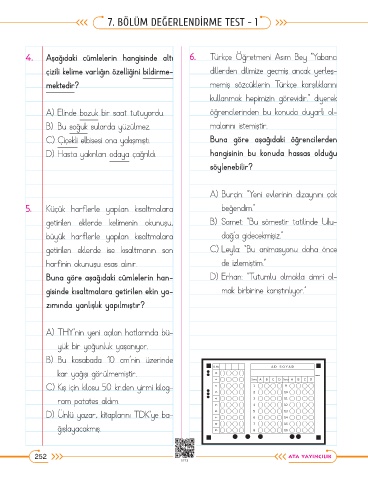 7. BÖLÜM DEĞERLENDİRME TEST - 1
4. Aşağıdaki cümlelerin hangisinde altı
çizili kelime varlığın özelliğini bildirme-
mektedir?
A) Elinde bozuk bir saat tutuyordu.
B) Bu soğuk sularda yüzülmez.
C) Çiçekli elbisesi ona yakışmıştı.
D) Hasta yakınları odaya çağrıldı.
5. Küçük harflerle yapılan kısaltmalara
getirilen eklerde kelimenin okunuşu,
büyük harflerle yapılan kısaltmalara
getirilen eklerde ise kısaltmanın son
harfinin okunuşu esas alınır.
Buna göre aşağıdaki cümlelerin han-
gisinde kısaltmalara getirilen ekin ya-
zımında yanlışlık yapılmıştır?
A) THY'nin yeni açılan hatlarında bü-
yük bir yoğunluk yaşanıyor.
B) Bu kasabada 10 cm'nin üzerinde
kar yağışı görülmemiştir.
C) Kış için kilosu 50 kr.den yirmi kilog-
ram patates aldım.
D) Ünlü yazar, kitaplarını TDK'ye ba-
ğışlayacakmış.
6. Türkçe Öğretmeni Asım Bey "Yabancı
dillerden dilimize geçmiş ancak yerleş-
memiş sözcüklerin Türkçe karşılıklarını
kullanmak hepimizin görevidir." diyerek
öğrencilerinden bu konuda duyarlı ol-
malarını istemiştir.
Buna göre aşağıdaki öğrencilerden
hangisinin bu konuda hassas olduğu
söylenebilir?
A) Burcin: "Yeni evlerinin dizaynını çok
beğendim."
B) Samet: "Bu sömestir tatilinde Ulu-
dağ'a gidecekmişiz."
C) Leyla: "Bu animasyonu daha önce
de izlemiştim."
D) Erhan: "Tutumlu olmakla cimri ol-
mak birbirine karıştırılıyor."
252
ATA YAYINCILIK